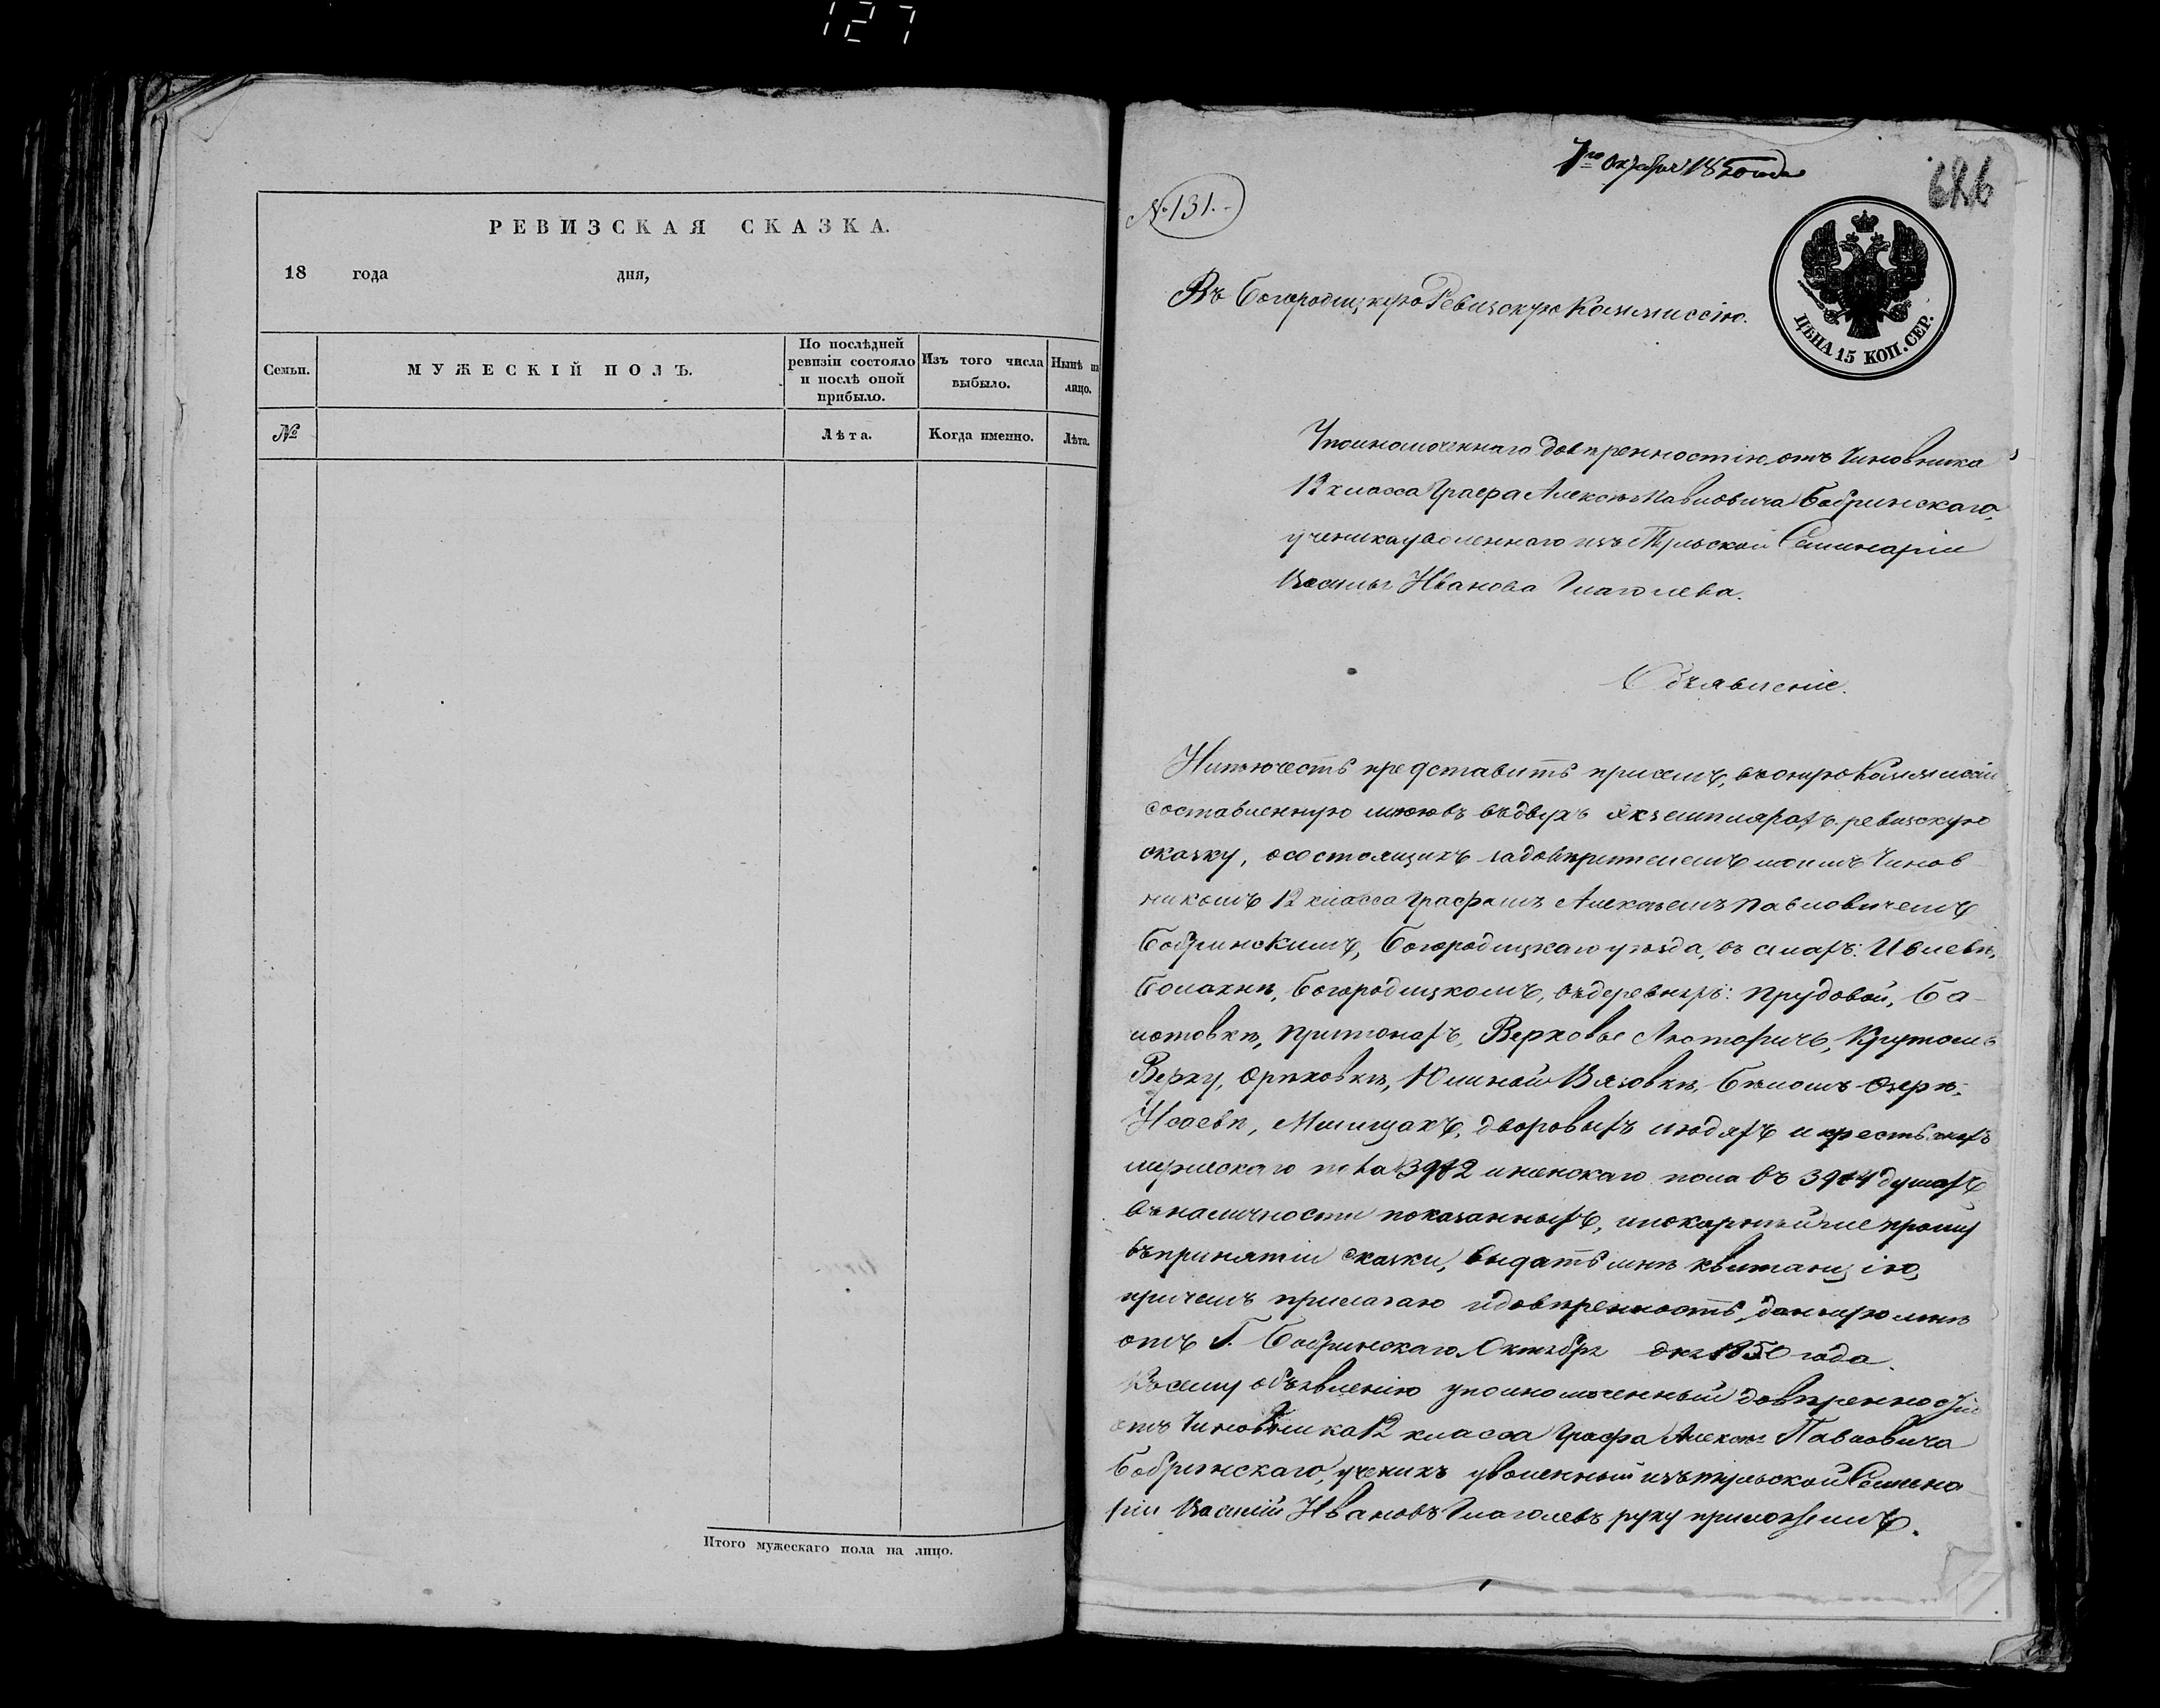 127
РЕВИЗСКАЯ СКАЗКА.
18 года дня,
Семьи.
МУЖЕСКІЙ ПОЛЪ.
По послѣдней ревизіи состояло и послѣ оной прибыло.
Изъ того числа выбыло.
Нынѣ на лицо.
№
Лѣта.
Когда именно.
Лѣта.
Итого мужескаго пола на лицо.
7го Октября 1850 года
№ 131.
626
ЦѢНА 15 КОП. СЕР.
Въ Богородицкую Ревизскую Коммиссію.
Уполномоченнаго довѣренностію отъ Чиновника
12 класса Графа Алексѣя Павловича Бобринскаго,
ученика уволеннаго изъ Тульской Семинаріи
Василья Иванова Глаголева.
Объявленіе.
Имѣю честь представить при семъ, въ оную Коммиссію
составленную мною въ двухъ экземплярахъ ревизскую
сказку, о состоящихъ за довѣрителемъ моимъ Чинов
никомъ 12 класса Графомъ Алексѣемъ Павловичемъ
Бобринскимъ, Богородицкаго уѣзда, въ селахъ: Ивлевѣ,
Балахнѣ, Богородицкомъ, въ деревняхъ: Прудовой, Ба-
лотовкѣ, Притонахъ, Верховье Люторичь, Крутомъ
Верху, Орѣховкѣ, Юлиной Вязовкѣ, Бѣломъ Озерѣ,
Исаевѣ, Мшищахъ, дворовыхъ людяхъ и крестьянахъ
мужескаго пола и женскаго пола въ душахъ
въ наличности показанныхъ, и покорнѣйше прошу
въ принятіи сказки, выдать мнѣ квитанцію,
причемъ прилагаю и довѣренность, данную мнѣ
отъ Г. Бобринскаго. Октября дня 1850 года.
Къ сему объявленію уполномоченный довѣренностію
отъ Чиновника 12 класса Графа Алексѣя Павловича
Бобринскаго, ученикъ уволенный изъ Тульской Семина
ріи Василій Ивановъ Глаголевъ руку приложилъ.